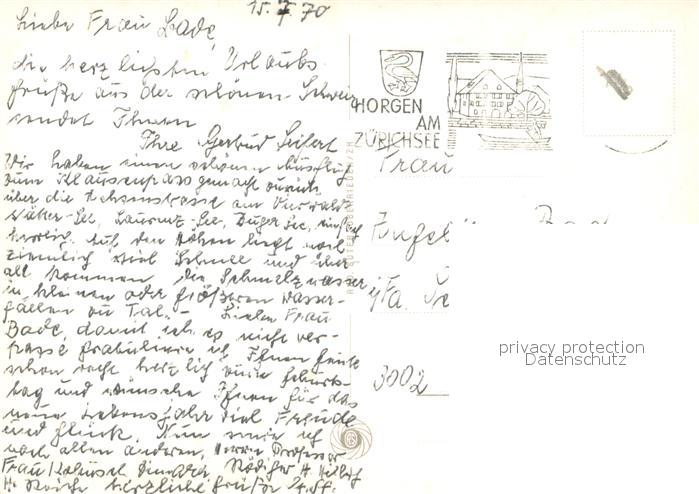 15. 7. 70
Liebe Frau Bade,
die herzlichsten Urlaubs-
grüße aus der schönen Schweiz
sendet Ihnen
Ihre Gertrud Seifert
Wir haben einen schönen Ausflug
zum Klausenpass gemacht zurück
über die Achsenstrasse am Vierwald-
stätter-See, Lauerz-See, Zuger See, einfach
herrlich. Auf den Höhen liegt noch
ziemlich viel Schnee und über-
all kommen die Schmelzwasser
in kleinen oder größeren Wasser-
fällen zu Tal. - Liebe Frau
Bade, damit ich es nicht ver-
passe gratuliere ich Ihnen heute
schon recht herzlich zum Geburts-
tag und wünsche Ihnen für das
neue Lebensjahr viel Freude
und Glück. Nun sende ich
noch allen anderen, Herrn Professor
Frau
herzliche Grüße
HORGEN
AM
ZÜRICHSEE
Frau
3002
privacy protection
Datenschutz